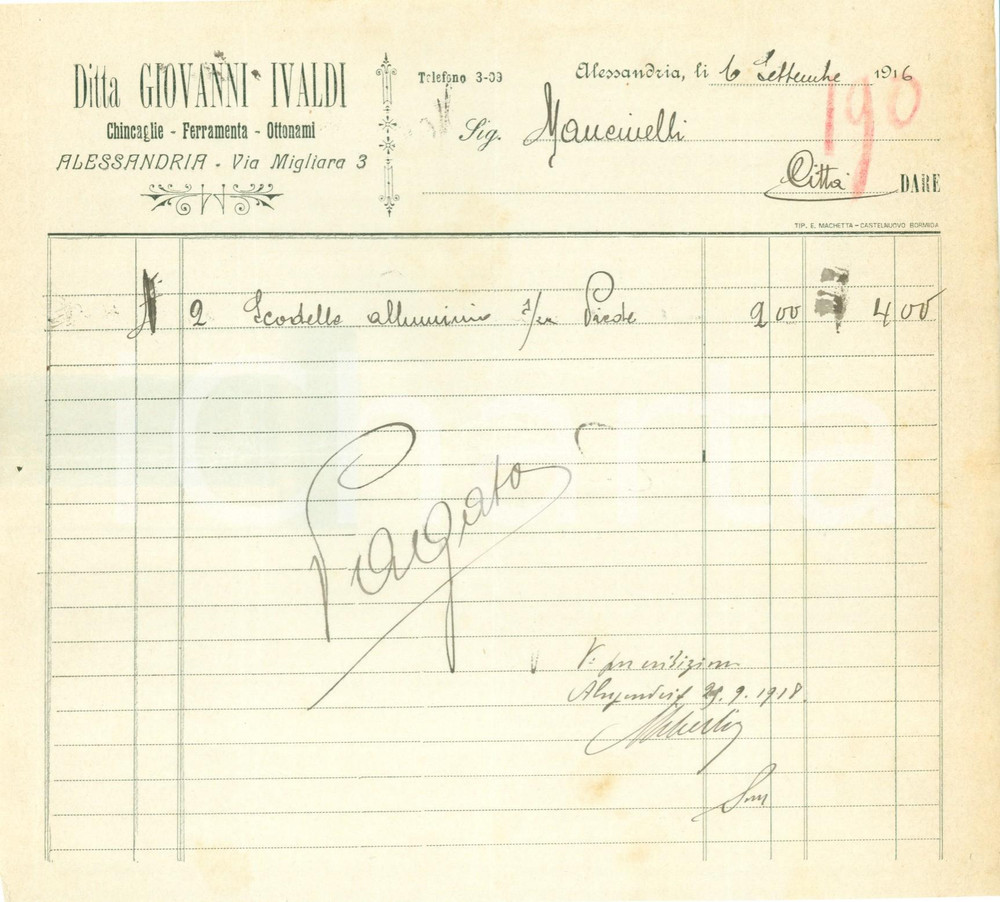 Ditta GIOVANNI IVALDI
Chincaglie - Ferramenta - Ottonami
ALESSANDRIA - Via Migliara 3
Telefono 3-09
Alessandria, li 6 Settembre 1916
190
Sig. Mancinelli
Città DARE
TIP. E. MACHETTA - CASTELNUOVO BORMIDA
2 Scodelle alluminio Piede 2 00 4 00
Pagato
V:
29.9.1918.